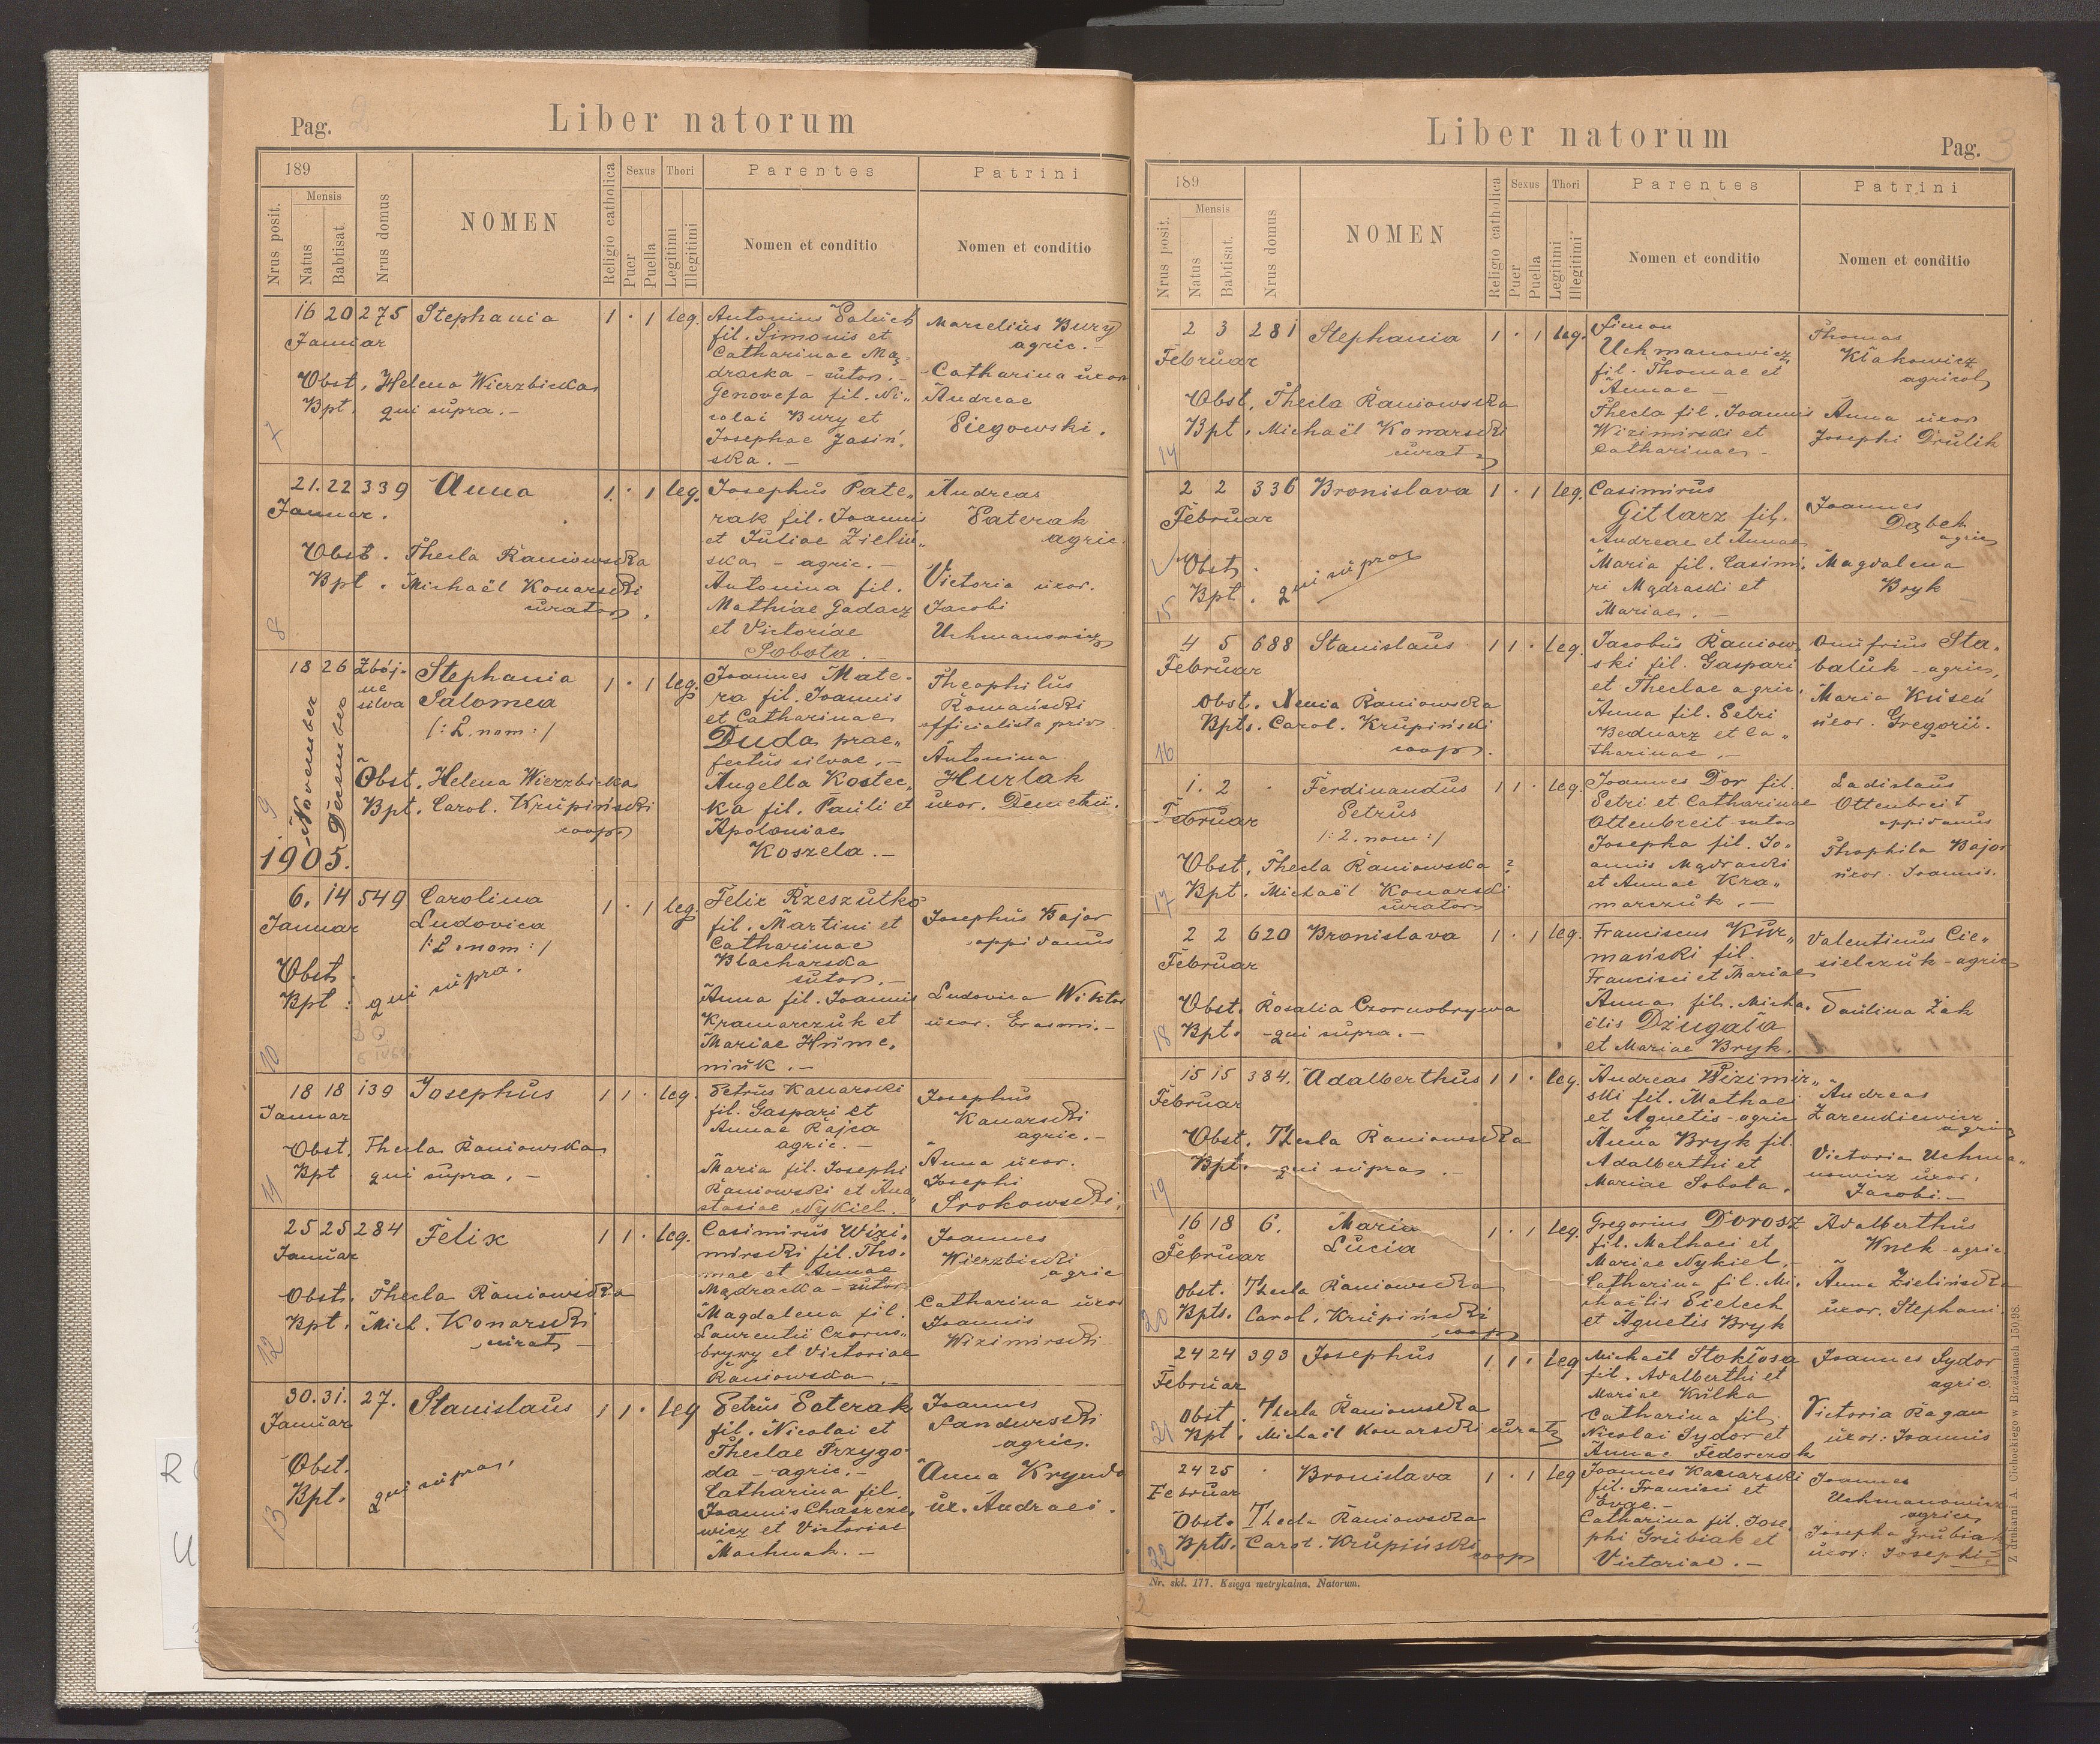 Pag. 2
Liber natorum
189
Mensis
Nrus posit.
Natus
Babtisat.
Nrus domus
NOMEN
Religio catholica
Sexus
Puer
Puella
Thori
Legitimi
Illegitimi
Parentes
Nomen et conditio
Patrini
Nomen et conditio
7
16 20 275 Stephania 1 · 1 leg.
Januar
Obst. Helena Wierzbicka
Bpt. qui supra. –
Antonius
fil. Simonis et
Catharinae Mą-
dracka – sutor. –
Genovefa fil. Ni„
colai Bury et
Josephae Jasiń.
ska. –
Marcelius Bury
agric. –
Catharina uxor
Andreae
8
21. 22 339 Anna 1. · 1 leg.
Januar.
Obst. Thecla Raniowska
Bpt. Michaël Konarski
curator.
Josephus Pate„
rak fil. Joannis
et Juliae Zieliń„
ska – agric. –
Antonina fil.
Mathiae Gadacz
et Victoriae
Sobota.
Andreas
Paterak
agric.
Victoria uxor.
Jacobi
Uchmanowicz
9
18 26 Zbój-
ne
silva
November
December
Stephania 1 · 1 leg.
Salomea
/: 2. nom :/
Obst. Helena Wierzbicka
Bpt. Carol. Krupiński
coop
Joannes Mate-
ra fil. Joannis
et Catharinae
Duda prae„
fectus silvae. –
Angella Kostec„
ka fil. Pauli et
Apoloniae
Koszela. –
Theophilus
Romański
officialista priv.
Antonina
Hurlak
uxor. Demetrii.
1905.
10
6. 14 549 Carolina 1 · 1 leg.
Januar
Ludovica
/: 2. nom :/
Obst.
Bpt. qui supra.
Felix Rzeszutko
fil. Martini et
Catharinae
Blacharska
sutor. –
Anna fil. Joannis
Kramarczuk et
Mariae Hume„
niuk. –
Josephus Bajor
oppidanus
Ludovica Wiktor
uxor. Erasmi. –
11
18 18 139 Josephus 1 1 · leg.
Januar
Obst. Thecla Raniowska
Bpt. qui supra. –
Petrus Kanarski
fil. Gaspari et
Annae Rajca
agric. –
Maria fil. Josephi
Raniowski et Ana„
stasiae Nykiel.
Josephus
Kanarski
agric. –
Anna uxor.
Josephi
Srokowski.
12
25 25 284 Felix 1 1 · leg.
Januar
Obst. Thecla Raniowska
Bpt. Mich. Konarski
curat –
Casimirus Wizi„
mirski fil. Tho„
mae et Annae
Mądracka – sutor
Magdalena fil.
Laurentii Czorno„
brywy et Victoriae
Raniowska. –
Joannes
Wierzbicki
agric
Catharina uxor
Joannis
Wizimirski
13
30. 31. 27. Stanislaus 1 1 · leg
Januar
Obst.
Bpt. qui supra.
Petrus Paterak
fil. Nicolai et
Theclae Przygo-
da – agric. –
Catharina fil.
Joannis Chaszcze„
wicz et Victoriae
Machnak. –
Joannes
Sandurski
agric.
Anna Krynda
ux. Andraei.
Liber natorum
Pag. 3
189
Mensis
Nrus posit.
Natus
Babtisat.
Nrus domus
NOMEN
Religio catholica
Sexus
Puer
Puella
Thori
Legitimi
Illegitimi
Parentes
Nomen et conditio
Patrini
Nomen et conditio
14
2 3 281 Stephania 1 · 1 leg.
Februar
Obst. Thecla Raniowska
Bpt. Michaël Konarski
curat
Simon
Uchmanowicz
fil. Thomae et
Annae –
Thecla fil. Joannis
Wizimirski et
Catharinae –
Thomas
Kłakowicz
agricol
Anna uxor
Josephi Drulik
15
2 2 336 Bronislava 1 · 1 leg.
Februar
Obst.
Bpt. qui supra
Casimirus
Gitlarz fil.
Andreae et Annae
Maria fil. Casimi„
ri Mądracki et
Mariae. –
Joannes
Dąbek
agric
Magdalena
Bryk
16
4 5 688 Stanislaus 1 1 · leg.
Februar
Obst. Xenia Raniowska
Bpts. Carol. Krupiński
coop.
Jacobus Raniow„
ski fil. Gaspari
et Theclae agric.
Anna fil. Petri
Bednarz et Ca„
tharinae. –
Onufrius Sta„
baluk – agric.
Maria Kuseń
uxor. Gregorii.
17
1. 2 · Ferdinandus 1 1 · leg.
Februar
Petrus
/: 2. nom :/
Obst. Thecla Raniowska ?
Bpt. Michaël Konarski
curator
Joannes Dor fil.
Petri et Catharinae
Ottenbreit – sutor
Josepha fil. Jo„
annis Mądracki
et Annae Kra„
marczuk. –
Ladislaus
Ottenbreit
oppidanus
Theophila Bajor
uxor. Joannis.
18
2 2 620 Bronislava 1 · 1 leg.
Februar
Obst. Rosalia Czornobrywa
Bpt. – qui supra. –
Franciscus Kur„
mański fil.
Francisci et Mariae
Anna fil. Micha„
ëlis Dziugała
et Mariae Bryk.
Valentinus Cie„
sielczuk – agric
Paulina Żak
19
15 15 384. Adalberthus 1 1 · leg.
Februar
Obst. Thecla Raniowska
Bpt. qui supra. –
Andreas Wizimir„
ski fil. Mathaei
et Agnetis – agric
Anna Bryk fil.
Adalberthi et
Mariae Sobota.
Andreas
Zarenkiewicz
agric
Victoria Uchma„
nowicz uxor.
Jacobi. –
20
16 18 6. Maria 1 · 1 leg.
Februar
Lucia
Obst. Thecla Raniowska
Bpts. Carol. Krupiński
coop
Gregorius Dorosz
fil. Mathaei et
Mariae Nykiel. –
Catharina fil. Mi„
chaëlis Pielech
et Agnetis Bryk
Adalberthus
Wnek – agric
Anna Zielińska
uxor. Stephani.
21
24 24 393 Josephus 1 1 · leg
Februar
Obst. Thecla Raniowska
Bpt. Michaël Konarski curat
Michaël Stokłosa
fil. Adalberthi et
Mariae Kulka
Catharina fil.
Nicolai Sydor et
Annae Fedorczak
Joannes Sydor
agric.
Victoria Ragan
uxor: Joannis
22
24 25 · Bronislava 1 · 1 leg
Februar
Obst. Thecla Raniowska
Bpts. Carol. Krupiński
coop
Joannes Kanarski
fil. Francisci et
Evae. –
Catharina fil. Jose„
phi Grubiak et
Victoriae. –
Joannes
Uchmanowicz
agric
Josepha Grubiak
uxor: Josephi –
Nr. skł. 177. Księga metrykalna. Natorum.
Z drukarni A. Cichockiego w Brzeżanach 150|98.
2